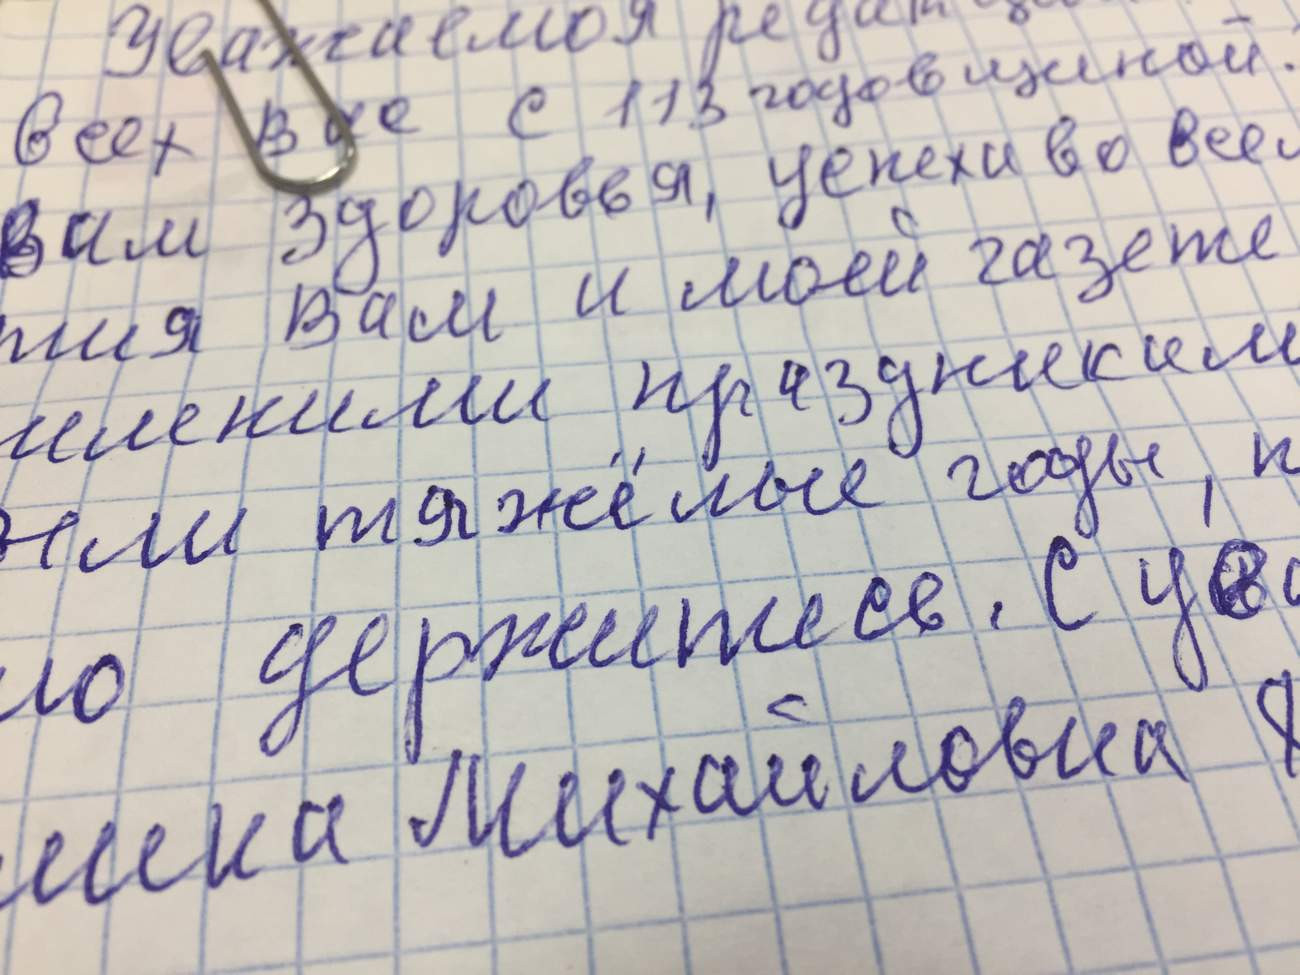 Уважаемоя редакция
всех Вас с 113 годовщиной.
Вам здоровья, успехи во всем
тия Вам и моей газете
праздникими
тяжёлые годы, п
держитесь. С ува
Михайловна